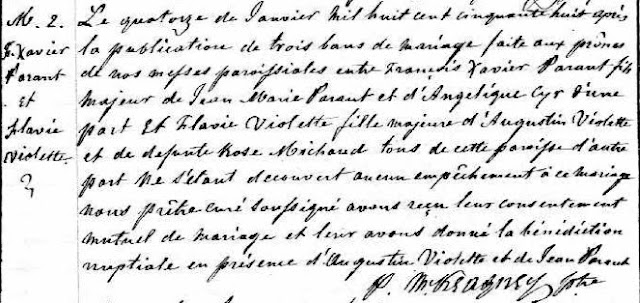 M. 2.
F. Xavier
Parant
Et
Flavie
Violette
Le quatorze de Janvier mil huit cent cinquante huit après
la publication de trois bans de mariage faite aux prônes
de nos messes paroissiales entre François Xavier Parant fils
majeur de Jean Marie Parant et d'Angelique Cyr d'une
part Et Flavie Violette fille majeure d'Augustin Violette
et de defunte Rose Michaud tous de cette paroisse d'autre
part Ne s'étant decouvert aucun empêchement à ce mariage
nous prêtre curé soussigné avons reçu leur consentement
mutuel de mariage et leur avons donné la bénédiction
nuptiale en présence d'Augustin Violette et de Jean Parant
P. McKeagney ptre